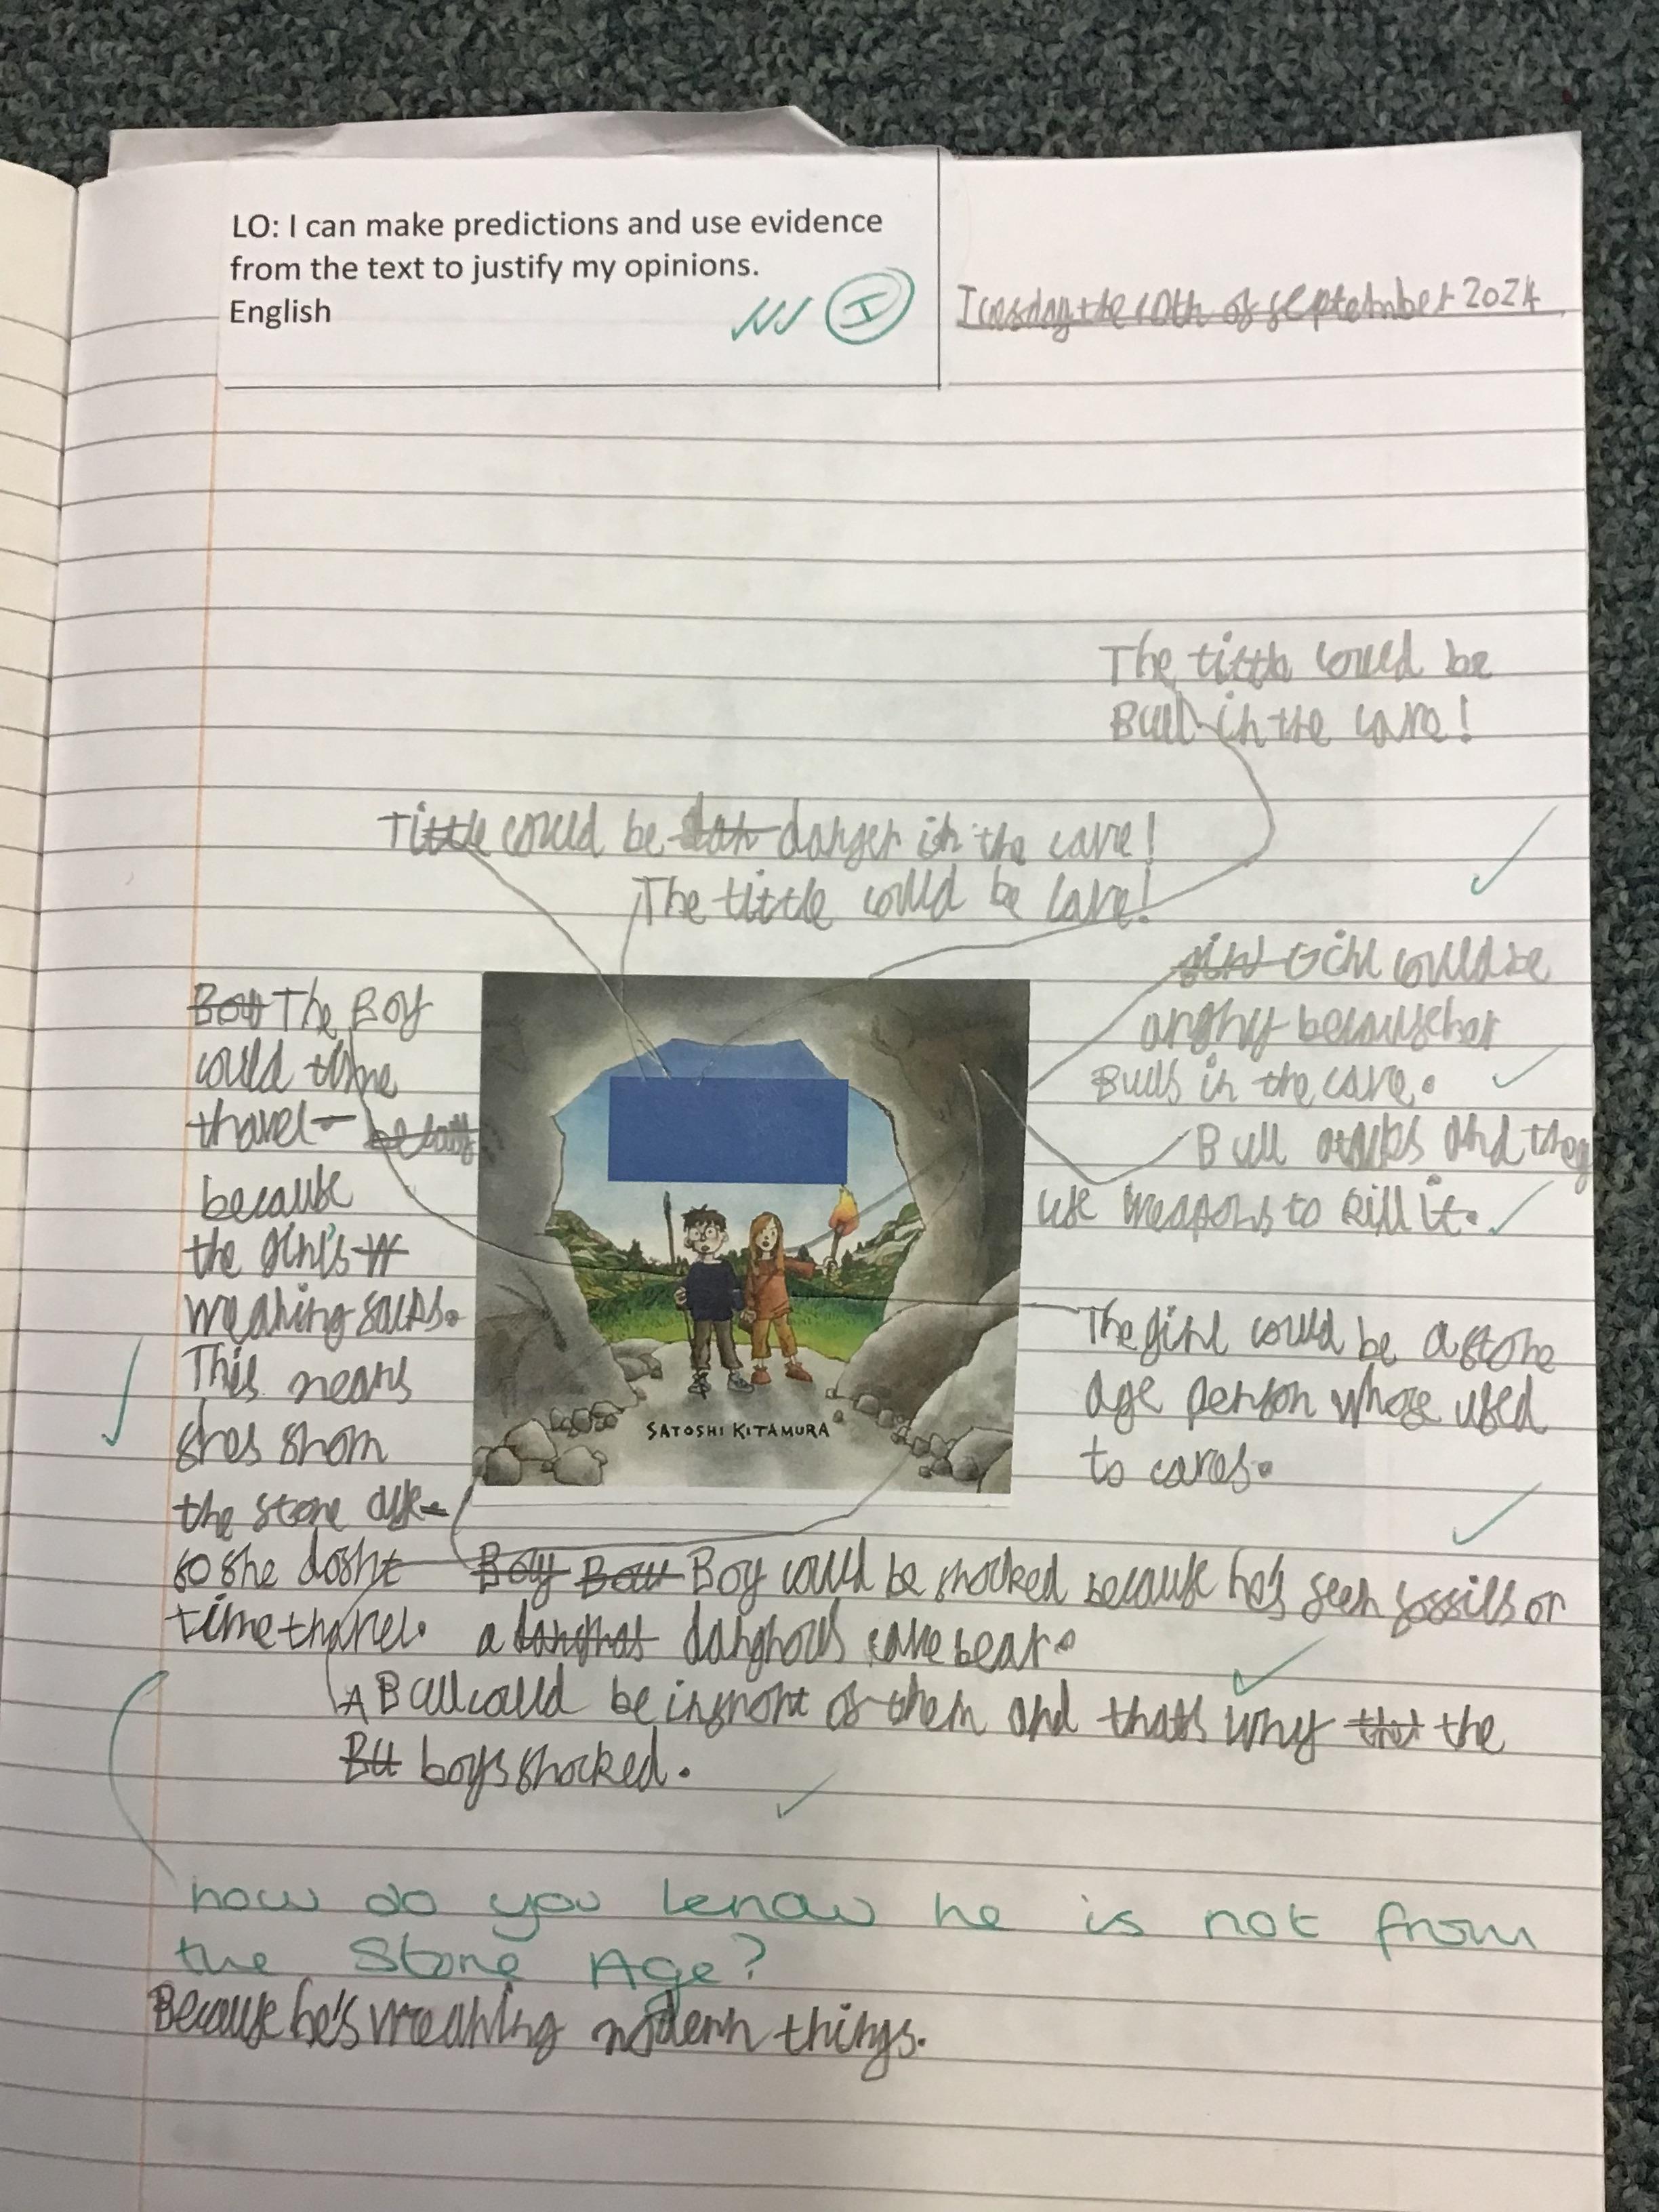 LO: I can make predictions and use evidence
from the text to justify my opinions.
English
I
Tuesday the 10th of september 2024
The tittle could be
Bull in the cave!
Tittle could be dan danger in the cave!
The tittle could be cave!
girl Girl could be
anghy because her
Bulls in the cave.
Bull attacks and they
use weapons to kill it.
Bow The Boy
could time
thavel
because
the girl's w
weahing sacks.
This means
shes from
the stone age
so she dosnt
time thavel.
SATOSHI KITAMURA
The girl could be a stone
age person whose used
to caves.
Boy Bow Boy could be shocked because he's seen fossils or
a danghous cave bear.
A Bull could be infront of them and thats why that the
Bu boys shocked.
how do you know he is not from
the Stone Age?
Because he's weahing modern things.